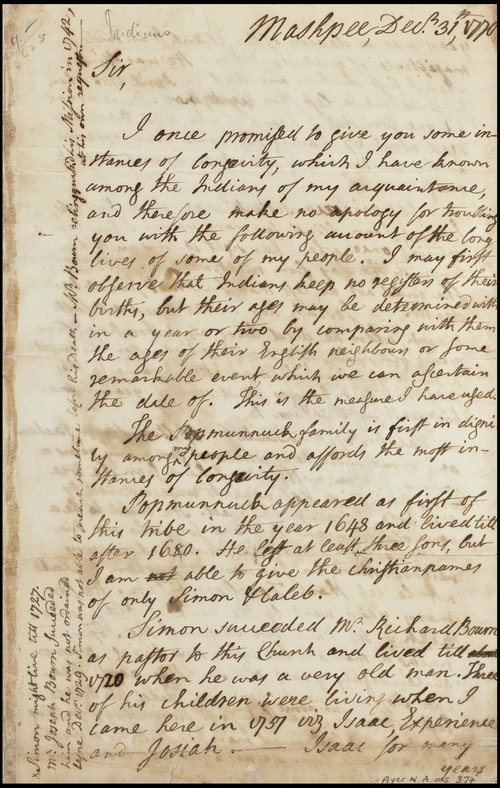 Indians
Mashpee, Decr. 31st, 1770
Sir,
I once promised to give you some in-
stances of longevity, which I have known
among the Indians of my acquaintance,
and therefore make no apology for troubling
you with the following account of the long
lives of some of my people. I may first
observe that Indians keep no registers of their
births, but their ages may be determined with
in a year or two by comparing with them
the ages of their English neighbours or some
remarkable event, which we can ascertain
the date of. This is the measure I have used.
The Popmunnuck family is first in digni
ty among my people and affords the most in-
stances of longevity.
Popmunnuck appeared as first of
this tribe in the year 1648 and lived till
after 1680. He left at least three sons, but
I am not able to give the christian names
of only Simon & Caleb.
Simon succeeded Mr. Richard Bourn
as pastor to this Church and lived till about
1720 when he was a very old man. Three
of his children were living when I
came here in 1757 viz Isaac, Experience
and Josiah. — Isaac for many
years
x Simon might live till 1727.
Mr. Joseph Bourn succeeded
him and he was not ordained
here Decr. 1729. Simon was not able to preach sometime before his Death — Mr. Bourn relinquished his Mission in 1742,
at his own request
Ayer N.A. ms 374